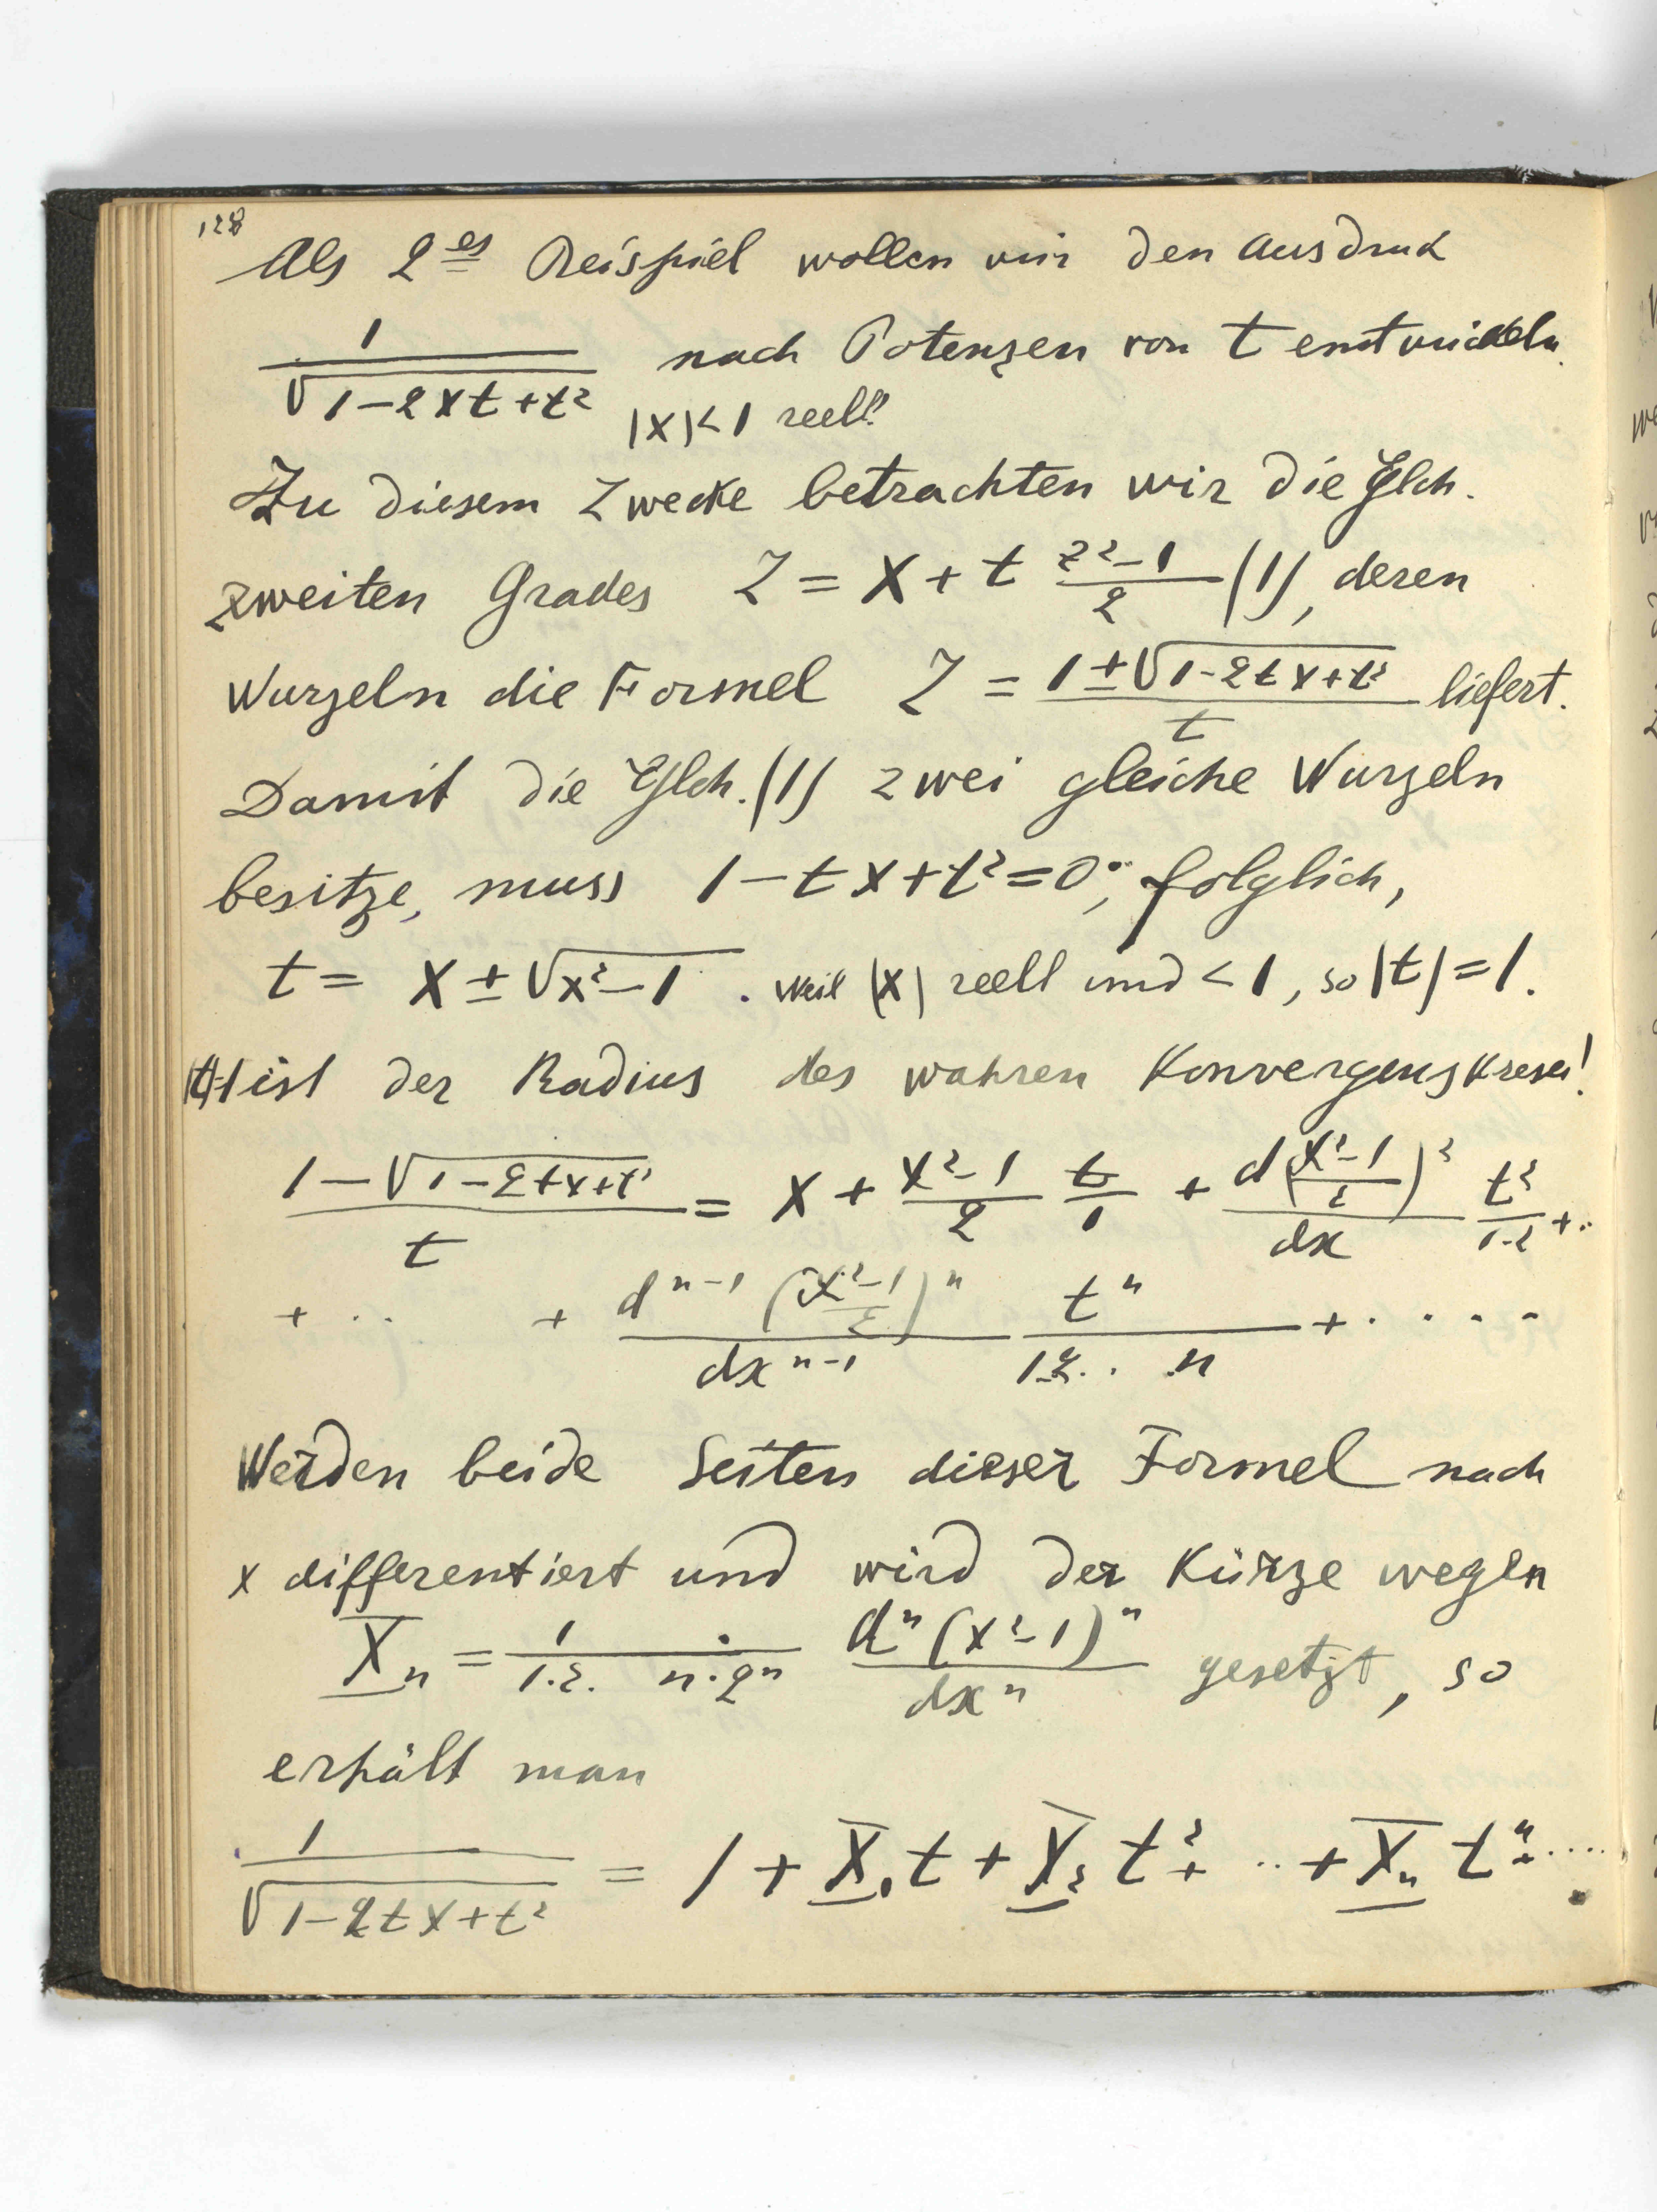 128
Als 2es Beispiel wollen wir den Ausdruck
1/√(1-2xt+t²) nach Potenzen von t entwickeln.
|x|<1 reell!
Zu diesem Zwecke betrachten wir die Glch.
zweiten Grades Z = x + t (z²-1)/2 (1), deren
Wurzeln die Formel Z = (1±√(1-2tx+t²))/t liefert.
Damit die Glch. (1) zwei gleiche Wurzeln
besitze, muss 1-tx+t²=0; folglich,
t = x ± √(x²-1). Weil |x| reell und <1, so |t|=1.
|t|=1 ist der Radius des wahren Konvergenzkreses!
(1-√(1-2tx+t²))/t = x + (x²-1)/2 t/1 + d((x²-1)/2)²/dx t²/1·2 + ..
+ .. + dⁿ⁻¹((x²-1)/2)ⁿ/dxⁿ⁻¹ tⁿ/1.2.. n + . . . .
Werden beide Seiten dieser Formel nach
x differentiert und wird der Kürze wegen
Xₙ = 1/(1.2. n·2ⁿ) dⁿ(x²-1)ⁿ/dxⁿ gesetzt, so
erhält man
1/√(1-2tx+t²) = 1 + X₁t + X₂t² + .. + Xₙtⁿ + ....